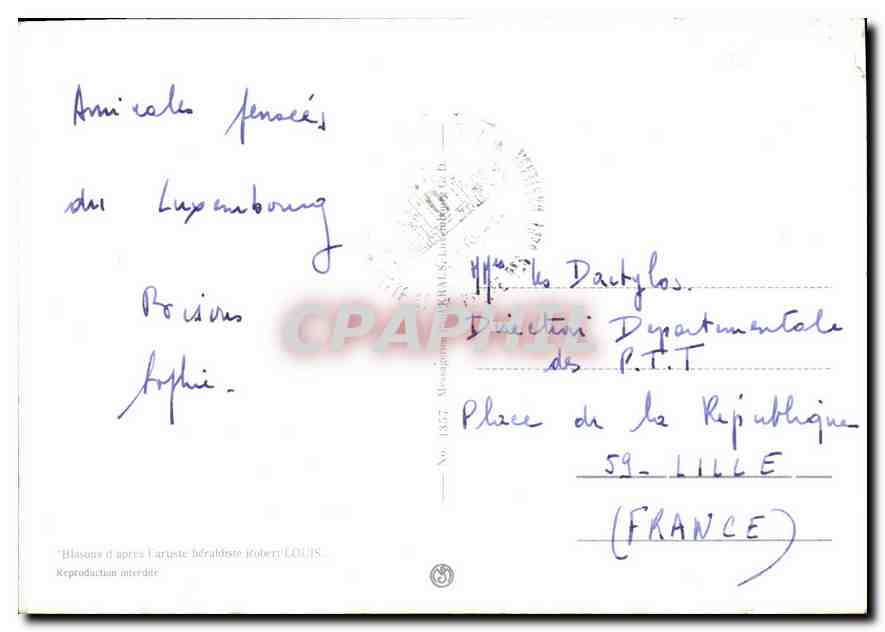 Amicales pensées
du Luxembourg
Bisous
Sophie -
MMes les Dactylos.
Direction Departementale
des P.T.T
Place de la République
59 - LILLE
(FRANCE)
No. 1357. Messageries Luxembourg G. D.
"Blasons d'après l'artiste héraldiste Robert LOUIS.
Reproduction interdite
CPAPHIL